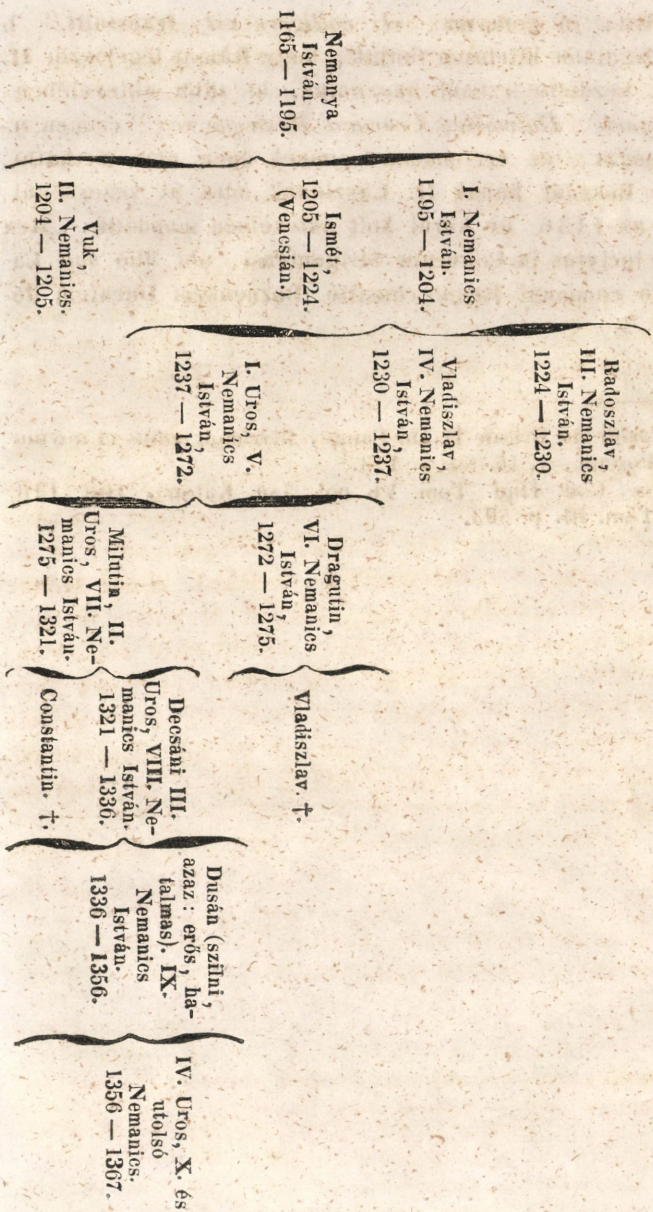 Nemanya
István
1165 — 1195.
I. Nemanics
István.
1195 — 1204.
Ismét,
1205 — 1224.
(Vencsián.)
Vuk,
II. Nemanics.
1204 — 1205.
Radoszlav,
III. Nemanics
István.
1224 — 1230.
Vladiszlav,
IV. Nemanics
István,
1230 — 1237.
I. Uros, V.
Nemanics
István,
1237 — 1272.
Dragutin,
VI. Nemanics
István,
1272 — 1275.
Milutin, II.
Uros, VII. Ne-
manics István.
1275 — 1321.
Vladiszlav. †.
Decsáni III.
Uros, VIII. Ne-
manics István.
1321 — 1336.
Constantin. †.
Dusán (szilni,
azaz: erős, ha-
talmas). IX.
Nemanics
István.
1336 — 1356.
IV. Uros, X. és
utolsó
Nemanics.
1356 — 1367.